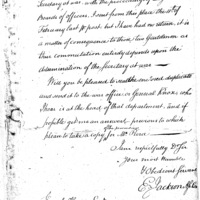 Secretary at war, with the proceedings of the
Boards of officers. I sent from this place the 11th of
February last past, but I have had no return, it is
a matter of consequence to those two Gentlemen as
their commutation entirely depends upon the
determination of the Secretary at war
Will you be pleased to make one word duplicate
and send to the war office as General Knox who
there is at the head of that department, and if
possible get me an answer previous to which
please to take a copy for Mr
I am respectfully Dr Sir
your most Humble
& Obedient Servant
E. Jackson